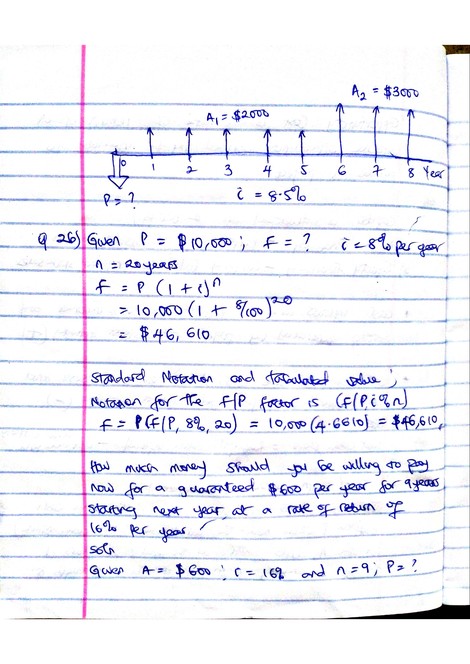 A₂ = $3000
A₁ = $2000
0 1 2 3 4 5 6 7 8 Year
P = ? i = 8.5%
Q 26) Given P = $10,000; F = ? i = 8% per year
n = 20 years
F = P (1 + i)ⁿ
= 10,000 (1 + 8/100)²⁰
= $46,610
Standard Notation and tabulated value;
Notation for the F/P factor is (F/P, i%, n)
F = P(F/P, 8%, 20) = 10,000(4.6610) = $46,610
How much money should you be willing to pay
now for a guaranteed $600 per year for 9 years
starting next year at a rate of return of
16% per year
Soln
Given A = $600; i = 16% and n = 9; P = ?